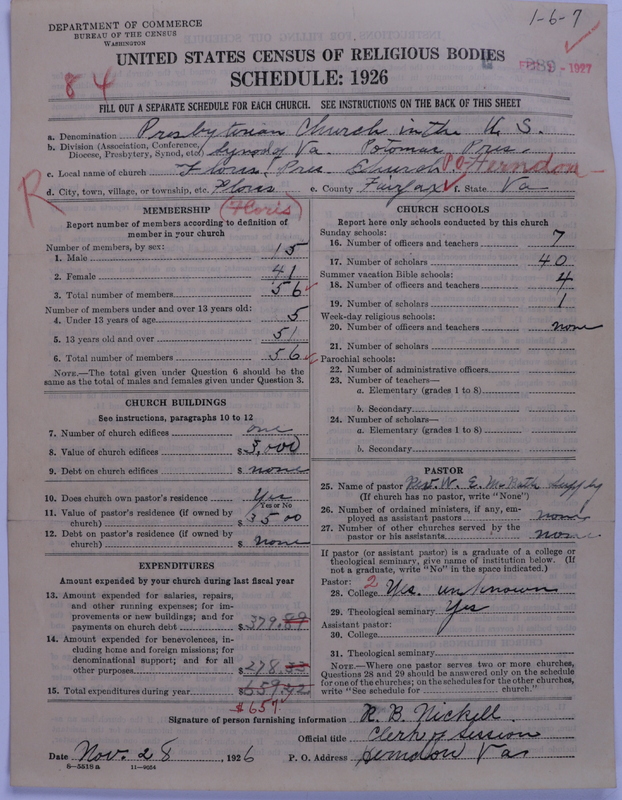 DEPARTMENT OF COMMERCE
BUREAU OF THE CENSUS
WASHINGTON
1-6-7
UNITED STATES CENSUS OF RELIGIOUS BODIES
1927
SCHEDULE: 1926
84
FILL OUT A SEPARATE SCHEDULE FOR EACH CHURCH. SEE INSTRUCTIONS ON THE BACK OF THIS SHEET
a. Denomination Presbyterian Church in the U. S.
b. Division (Association, Conference, Diocese, Presbytery, Synod, etc.) Synod of Va. Potomac Pres.
c. Local name of church Floris Pres. Church P.O. Herndon
d. City, town, village, or township, etc. Floris e. County Fairfax f. State Va
R
(Floris)
MEMBERSHIP
Report number of members according to definition of
member in your church
Number of members, by sex:
1. Male 15
2. Female 41
3. Total number of members 56
Number of members under and over 13 years old:
4. Under 13 years of age 5
5. 13 years old and over 51
6. Total number of members 56
NOTE.—The total given under Question 6 should be the
same as the total of males and females given under Question 3.
CHURCH BUILDINGS
See instructions, paragraphs 10 to 12
7. Number of church edifices one
8. Value of church edifices $ 3,000
9. Debt on church edifices $ none
10. Does church own pastor's residence Yes
Yes or No
11. Value of pastor's residence (if owned by
church) $ 3500
12. Debt on pastor's residence (if owned by
church) $ none
EXPENDITURES
Amount expended by your church during last fiscal year
13. Amount expended for salaries, repairs,
and other running expenses; for im-
provements or new buildings; and for
payments on church debt $ 379.89
14. Amount expended for benevolences, in-
cluding home and foreign missions; for
denominational support; and for all
other purposes $ 278.
15. Total expenditures during year $ 659.42
$657
CHURCH SCHOOLS
Report here only schools conducted by this church
Sunday schools:
16. Number of officers and teachers 7
17. Number of scholars 40
Summer vacation Bible schools:
18. Number of officers and teachers 4
19. Number of scholars 1
Week-day religious schools:
20. Number of officers and teachers none
21. Number of scholars
Parochial schools:
22. Number of administrative officers
23. Number of teachers—
a. Elementary (grades 1 to 8)
b. Secondary
24. Number of scholars—
a. Elementary (grades 1 to 8)
b. Secondary
PASTOR
25. Name of pastor Rev. W. E. McNath Supply
(If church has no pastor, write "None")
26. Number of ordained ministers, if any, em-
ployed as assistant pastors none
27. Number of other churches served by the
pastor or his assistants none
If pastor (or assistant pastor) is a graduate of a college or
theological seminary, give name of institution below. (If
not a graduate, write "No" in the space indicated.)
Pastor: 2
28. College Yes. unknown
29. Theological seminary Yes
Assistant pastor:
30. College
31. Theological seminary
NOTE.—Where one pastor serves two or more churches,
Questions 28 and 29 should be answered only on the schedule
for one of the churches; on the schedules for the other churches,
write "See schedule for church."
Signature of person furnishing information R. B. Nickell
Official title Clerk of Session
Date Nov. 28, 1926 P. O. Address Herndon Va
8—5518 a 11—9054